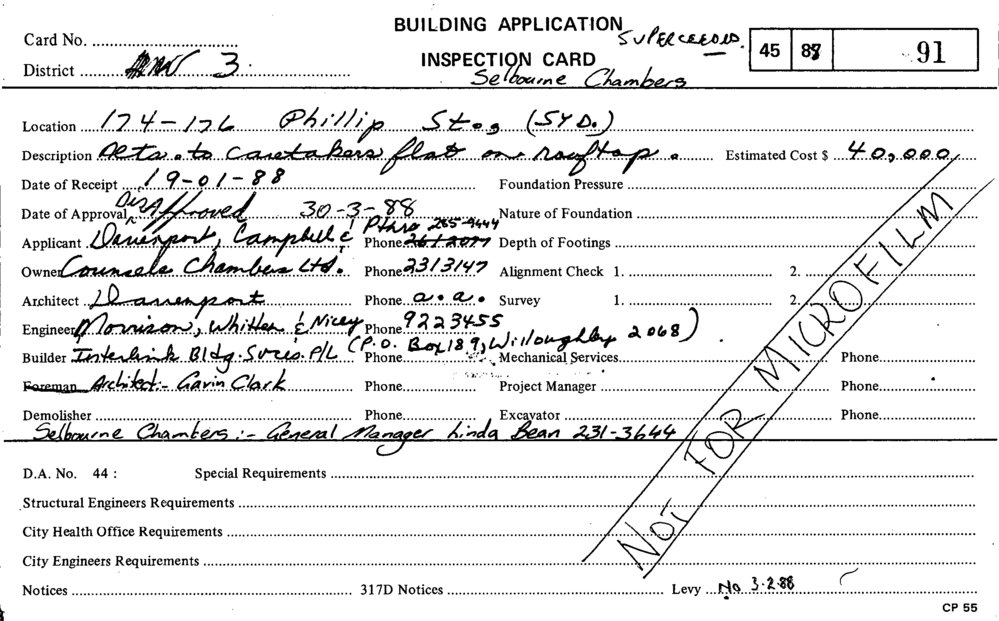 BUILDING APPLICATION
SUPERCEEDED.
Card No.
INSPECTION CARD
45 88 91
District 3.
Selbourne Chambers
Location 174-176 Phillip St. (SYD.)
Description Alts. to caretakers flat on rooftop. Estimated Cost $ 40,000
Date of Receipt 19-01-88 Foundation Pressure
Date of Approval DisApproved 30-3-88 Nature of Foundation
Applicant Davenport, Campbell & Ptnrs Phone 235-4444 Depth of Footings
Owner Counsels Chambers Ltd. Phone 2313147 Alignment Check 1. 2.
Architect Davenport Phone a.a. Survey 1. 2.
Engineer Morrison, Whitten & Phone 9223455
Builder Interlink Bldg. Svces. P/L (P.O. Box 189, Willoughby 2068) Phone Mechanical Services Phone
Foreman Architect:- Gavin Clark Phone Project Manager Phone
Demolisher Phone Excavator Phone
Selbourne Chambers:- General Manager Linda Bean 231-3644
NOT FOR MICROFILM
D.A. No. 44 : Special Requirements
Structural Engineers Requirements
City Health Office Requirements
City Engineers Requirements
Notices 317D Notices Levy No 3.2.88
CP 55